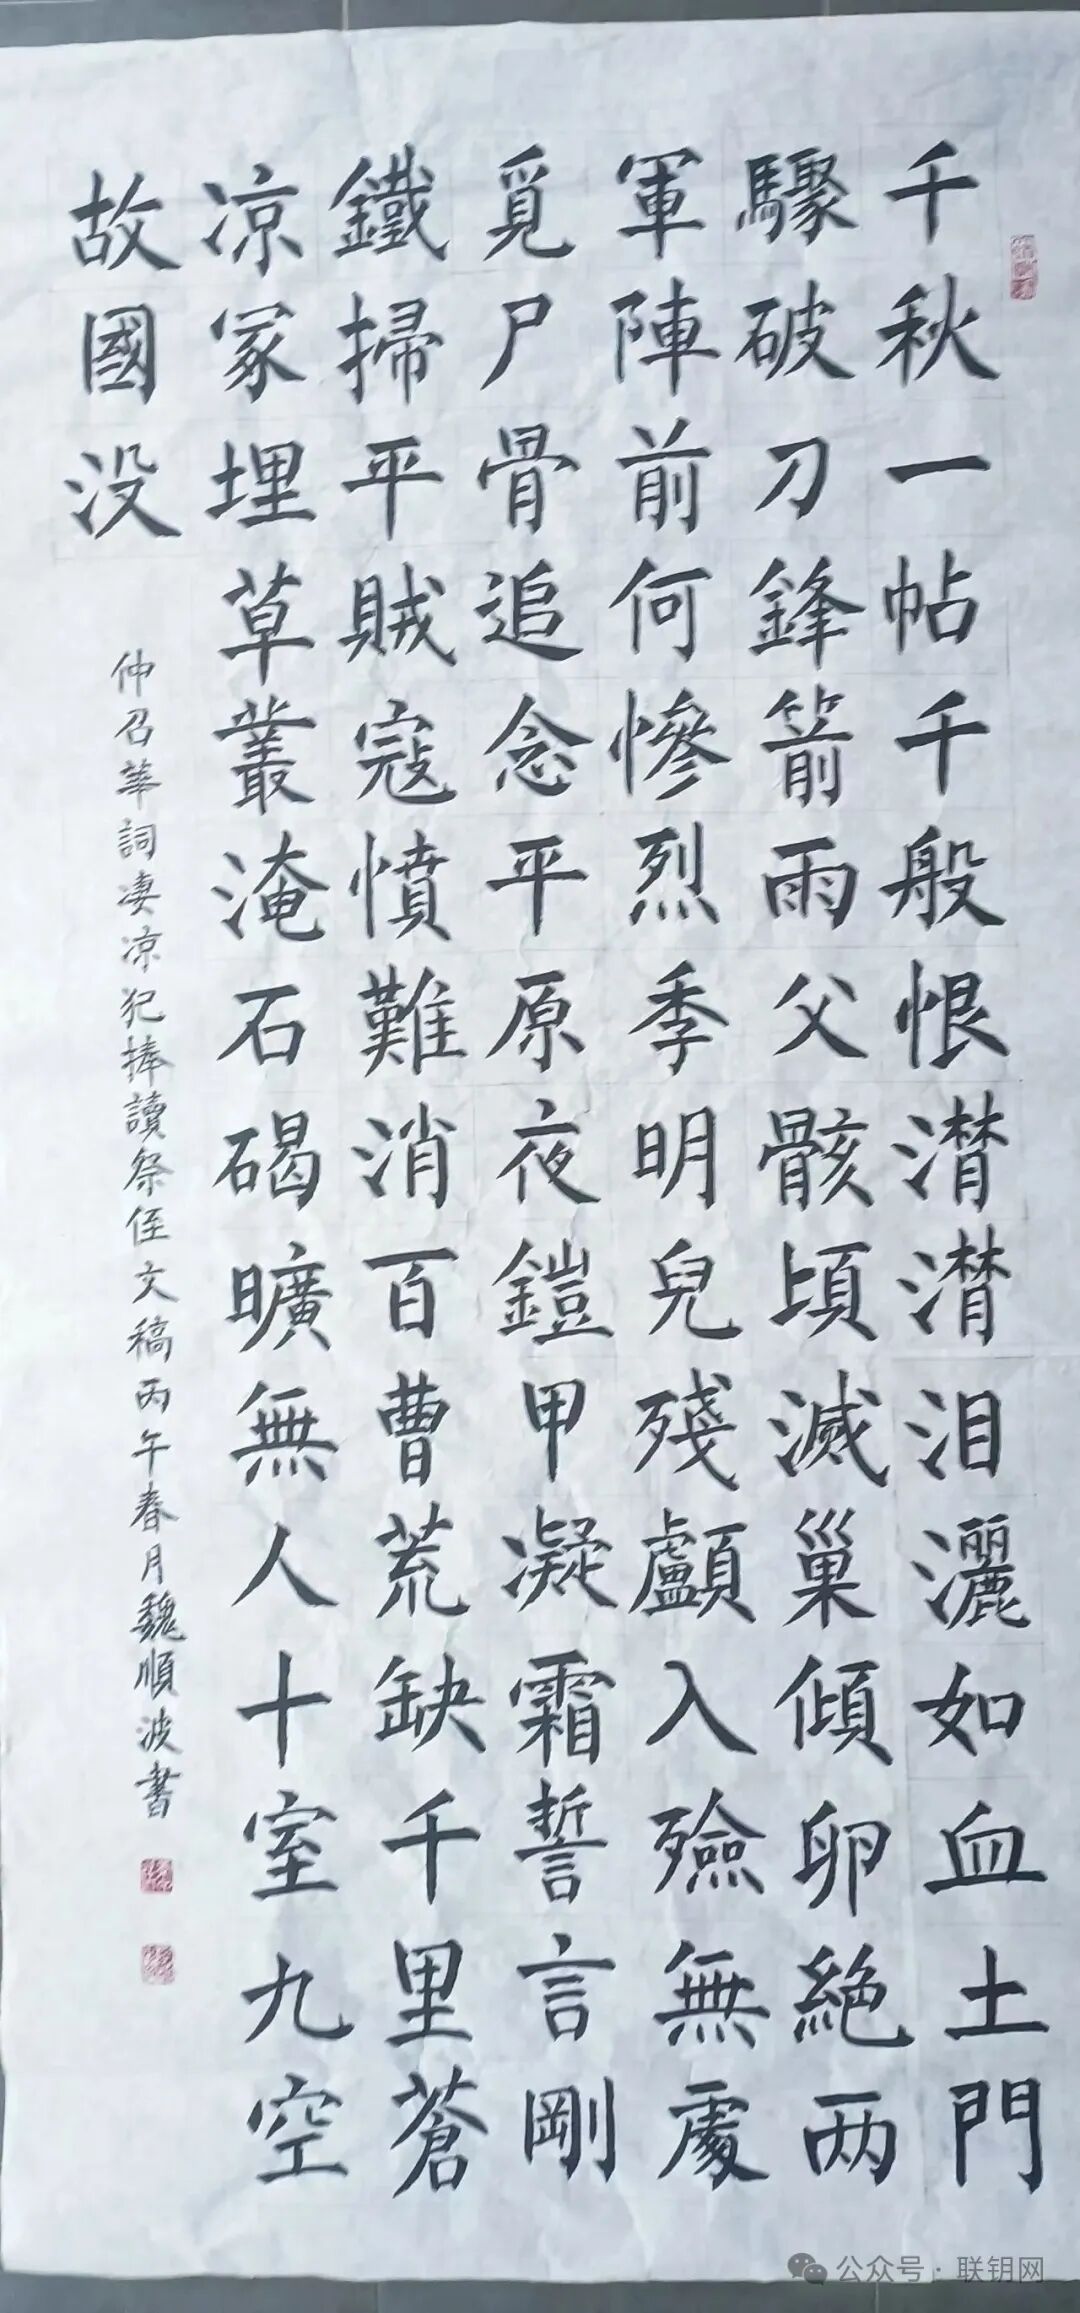 千秋一帖千般恨潸潸泪灑如血土門
驟破刀鋒箭雨父骸頃滅巢傾卵絶两
軍陣前何慘烈季明兒殘顱入殮無處
覓尸骨追念平原夜鎧甲凝霜誓言剛
鐵掃平賊寇憤難消百曹荒缺千里蒼
凉冢埋草叢淹石碣曠無人十室九空
故國没
仲召華詞凄凉犯捧讀祭侄文稿丙午春月魏順波書
公众号·联钥网